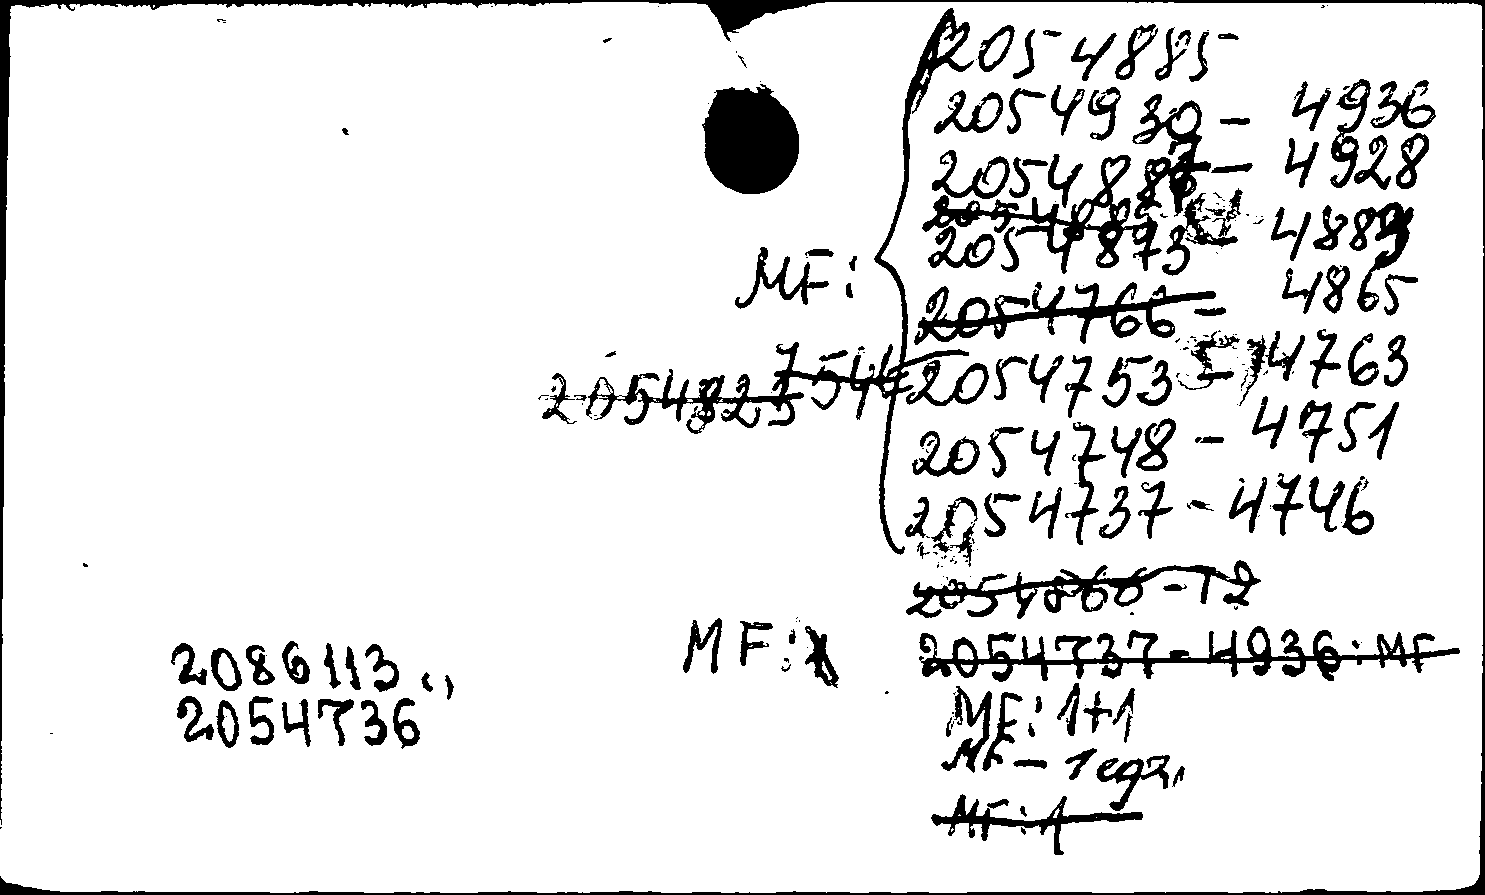 2054885
2054930 - 4936
2054887 - 4928
2054873 - 4883
MF:
2054766 - 4865
2054753 - 4763
2054823
2054748 - 4751
2054737 - 4746
2054866 - T2
MF:
2054737 - 4936: MF
2086113 (,)
2054736
MF: 1+1
MF - 1 egz,
MF: 1